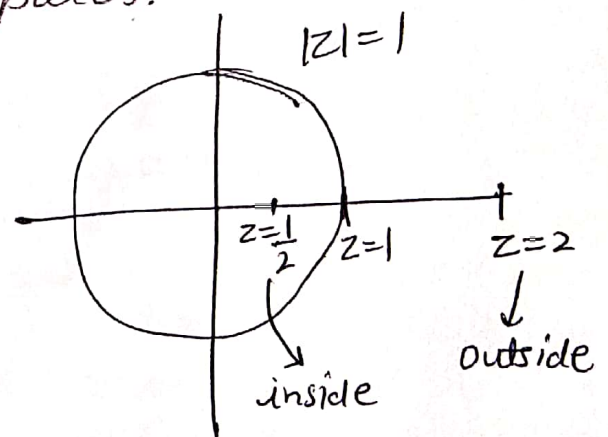 |z| = 1
z=1/2
z=1
z=2
outside
inside